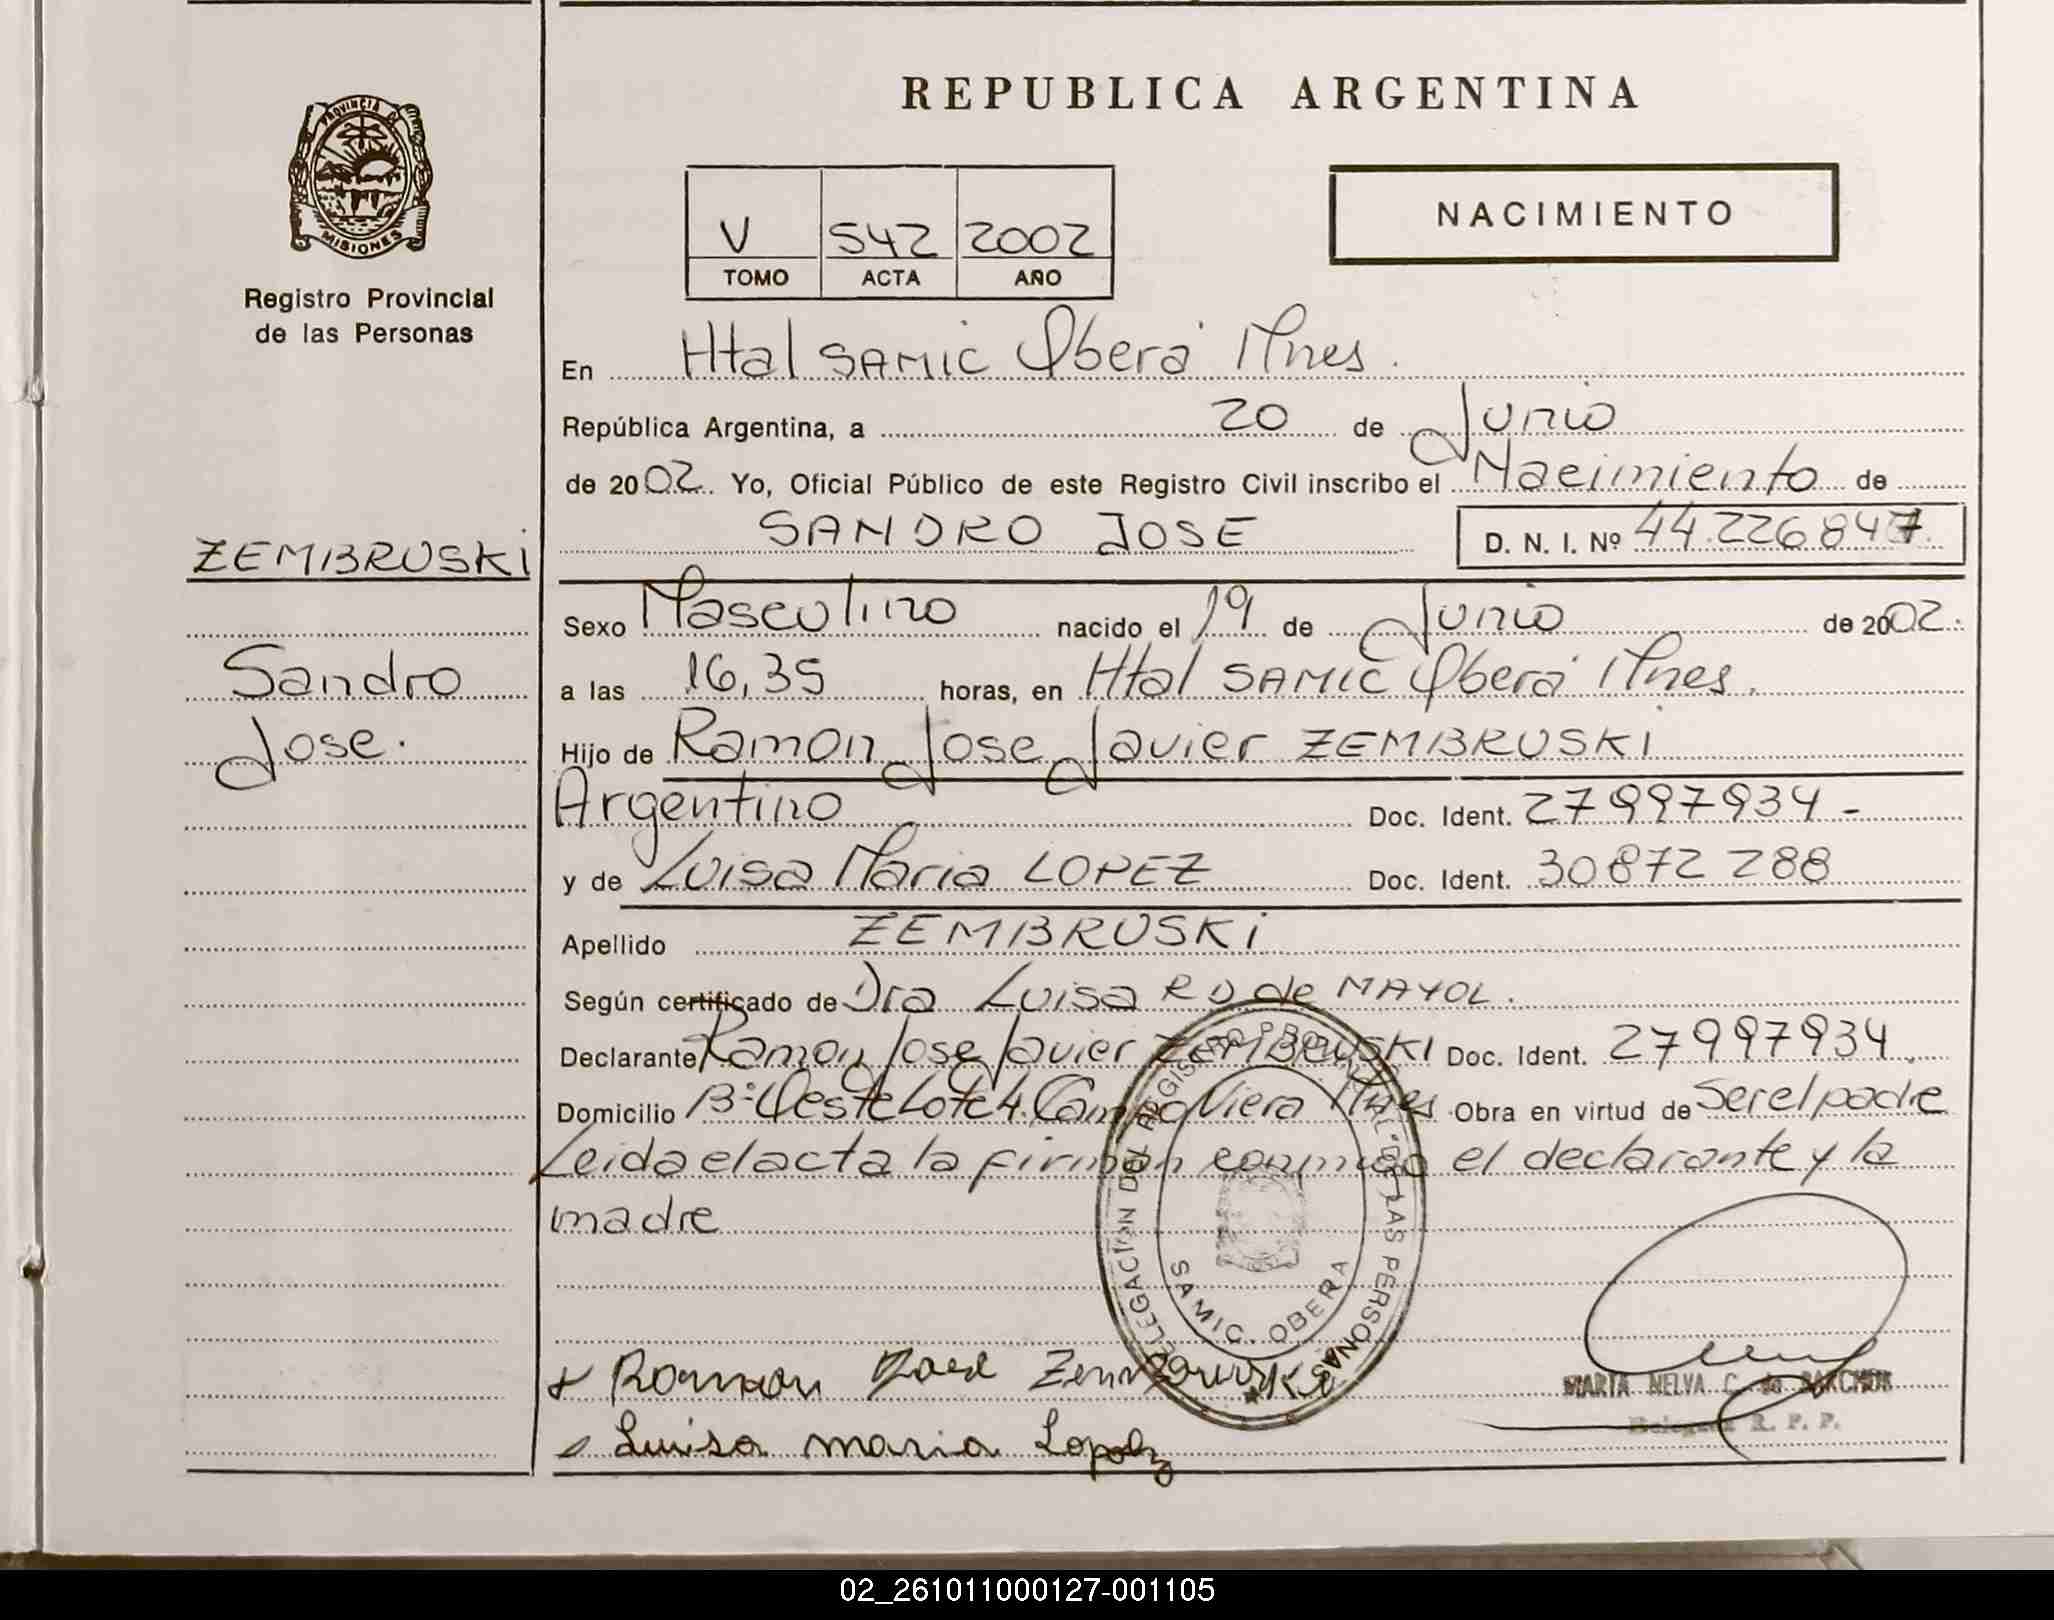 REPUBLICA ARGENTINA
PROVINCIA DE
MISIONES
Registro Provincial
de las Personas
V 542 2002
TOMO ACTA AÑO
NACIMIENTO
En Htal SAMIC Oberá Mnes.
República Argentina, a 20 de Junio
de 2002. Yo, Oficial Público de este Registro Civil inscribo el Nacimiento de
SANDRO JOSE D. N. I. Nº 44.226847
ZEMBRUSKi
Sandro
Jose.
Sexo Masculino nacido el 19 de Junio de 2002.
a las 16,35 horas, en Htal SAMIC Oberá Mnes.
Hijo de Ramon Jose Javier ZEMBRUSKI
Argentino Doc. Ident. 27997934-
y de Luisa Maria LOPEZ Doc. Ident. 30872288
Apellido ZEMBRUSKi
Según certificado de Dra Luisa R D de MAYOL.
Declarante Ramon Jose Javier ZEMBRUSKI Doc. Ident. 27997934.
Domicilio Bº Oeste Lote 4. Campo Viera Mnes Obra en virtud de Ser el padre
Leida el acta la firman conmigo el declarante y la
madre
DELEGACION DEL REGISTRO PROVINCIAL DE LAS PERSONAS
SAMIC. OBERA
Ramon José Zembruski
Luisa maria Lopez
MARTA NELVA C. de
Delegada R. P. P.
02_261011000127-001105